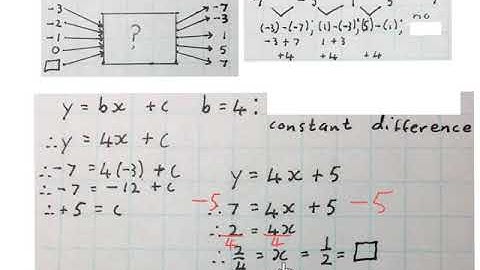 -3
-2
-1
0
?
-7
-3
1
5
7
no
(-3)-(-7); (1)-(-3); (5)-(1)
-3+7 1+3
+4 +4 +4
y = bx + c b = 4:
constant difference
∴ y = 4x + c
∴ -7 = 4(-3) + c
∴ -7 = -12 + c
∴ +5 = c
y = 4x + 5
-5 ∴ 7 = 4x + 5 -5
∴ 2/4 = 4x/4
∴ 2/4 = x = 1/2 = □